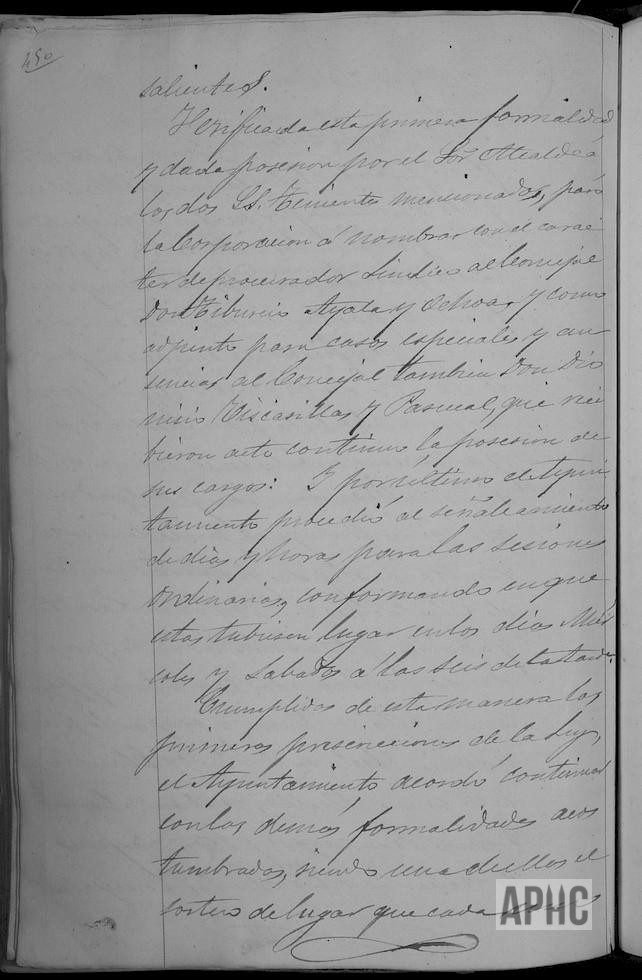 450
salientes.
Verificada esta primera formalidad
y dada posesion por el Sor Alcalde á
los dos SS. Tenientes mencionados, pasó
la Corporacion á nombrar con el carac
ter de procurador Sindico al Concejal
Don Tiburcio Ayala y Ochoa, y como
adjunto para casos especiales y au
sencias al Concejal tambien Don Dio
nisio Viscasillas y Pascual, que reci
bieron acto continuo la posesion de
sus cargos. Y por último el Ayun
tamiento procedió al señaleamiento
de dias y horas para las sesiones
ordinarias, conformando en que
estas tubiesen lugar en los dias Mier
coles y Sabados á las seis de la tarde.
Cumplidas de esta manera las
primeras prescriciones de la Ley,
el Ayuntamiento acordó continuar
con las demás formalidades acos
tumbradas, siendo una de ellas el
sorteo de lugar que cada
APHC